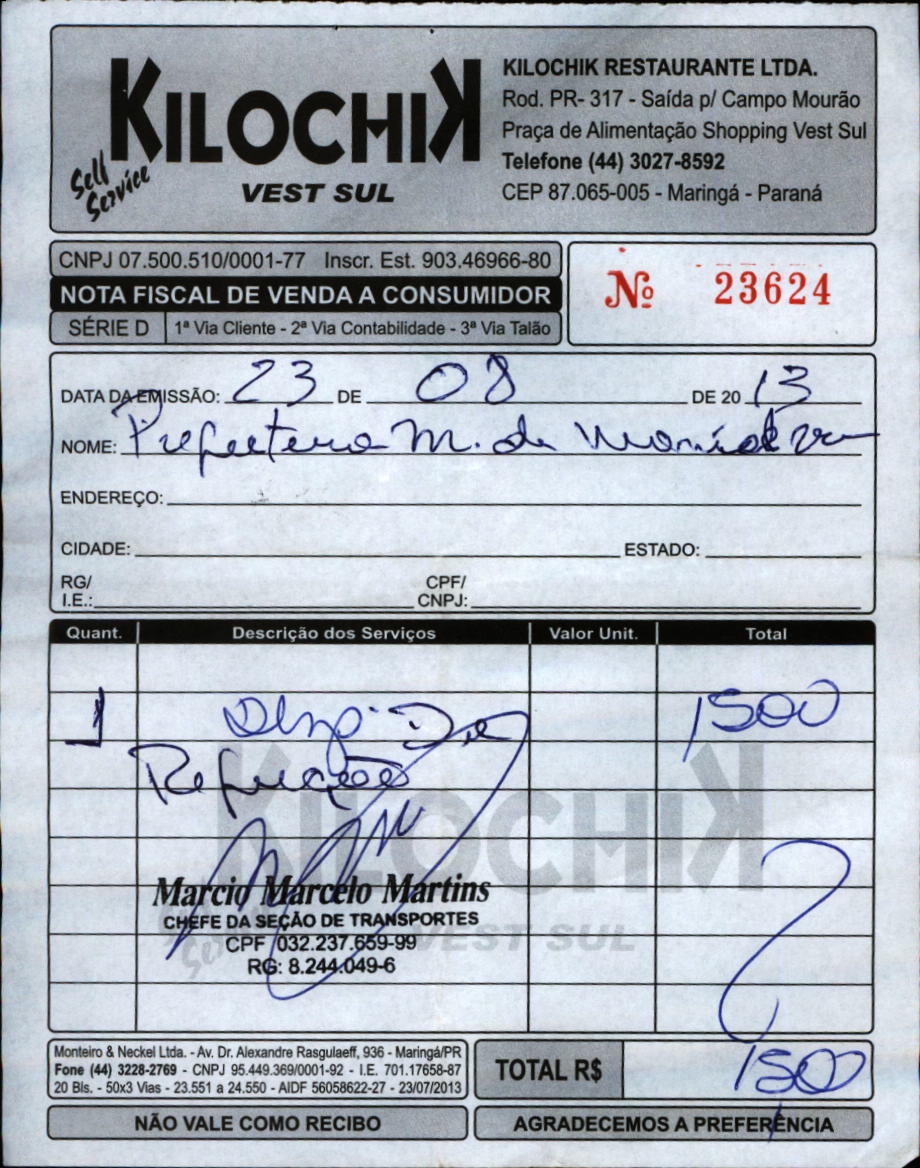 KILOCHIK
Self Service
VEST SUL
KILOCHIK RESTAURANTE LTDA.
Rod. PR- 317 - Saída p/ Campo Mourão
Praça de Alimentação Shopping Vest Sul
Telefone (44) 3027-8592
CEP 87.065-005 - Maringá - Paraná
CNPJ 07.500.510/0001-77 Inscr. Est. 903.46966-80
NOTA FISCAL DE VENDA A CONSUMIDOR
SÉRIE D 1ª Via Cliente - 2ª Via Contabilidade - 3ª Via Talão
Nº 23624
DATA DA EMISSÃO: 23 DE 08 DE 2013
NOME: Prefeitura M. de
ENDEREÇO:
CIDADE: ESTADO:
RG/ I.E.: CPF/ CNPJ:
Quant. Descrição dos Serviços Valor Unit. Total
1 Desp. 1500
Refeição
KILOCHIK
Self Service
VEST SUL
Marcio Marcelo Martins
CHEFE DA SEÇÃO DE TRANSPORTES
CPF 032.237.659-99
RG: 8.244.049-6
Monteiro & Neckel Ltda. - Av. Dr. Alexandre Rasgulaeff, 936 - Maringá/PR
Fone (44) 3228-2769 - CNPJ 95.449.369/0001-92 - I.E. 701.17658-87
20 Bls. - 50x3 Vias - 23.551 a 24.550 - AIDF 56058622-27 - 23/07/2013
TOTAL R$ 1500
NÃO VALE COMO RECIBO
AGRADECEMOS A PREFERÊNCIA